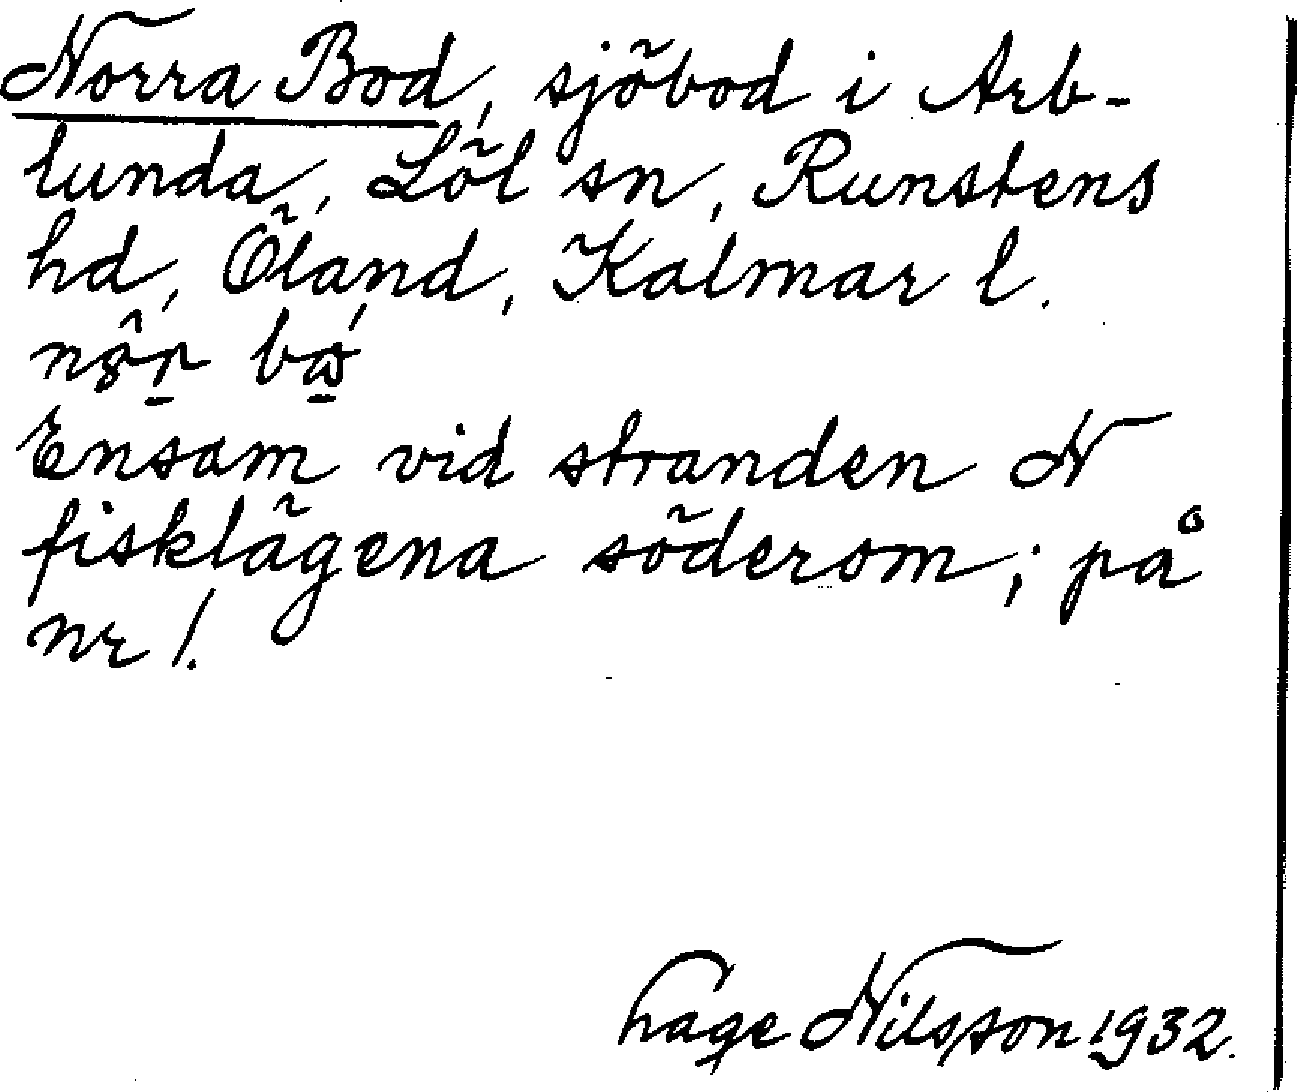 Norra Bod, sjöbod i Arb-
lunda, Löl sn, Runstens
hd, Öland, Kalmar l.
Ensam vid stranden N
fisklägena söderom; på
nr 1.
Hage Nilsson 1932.